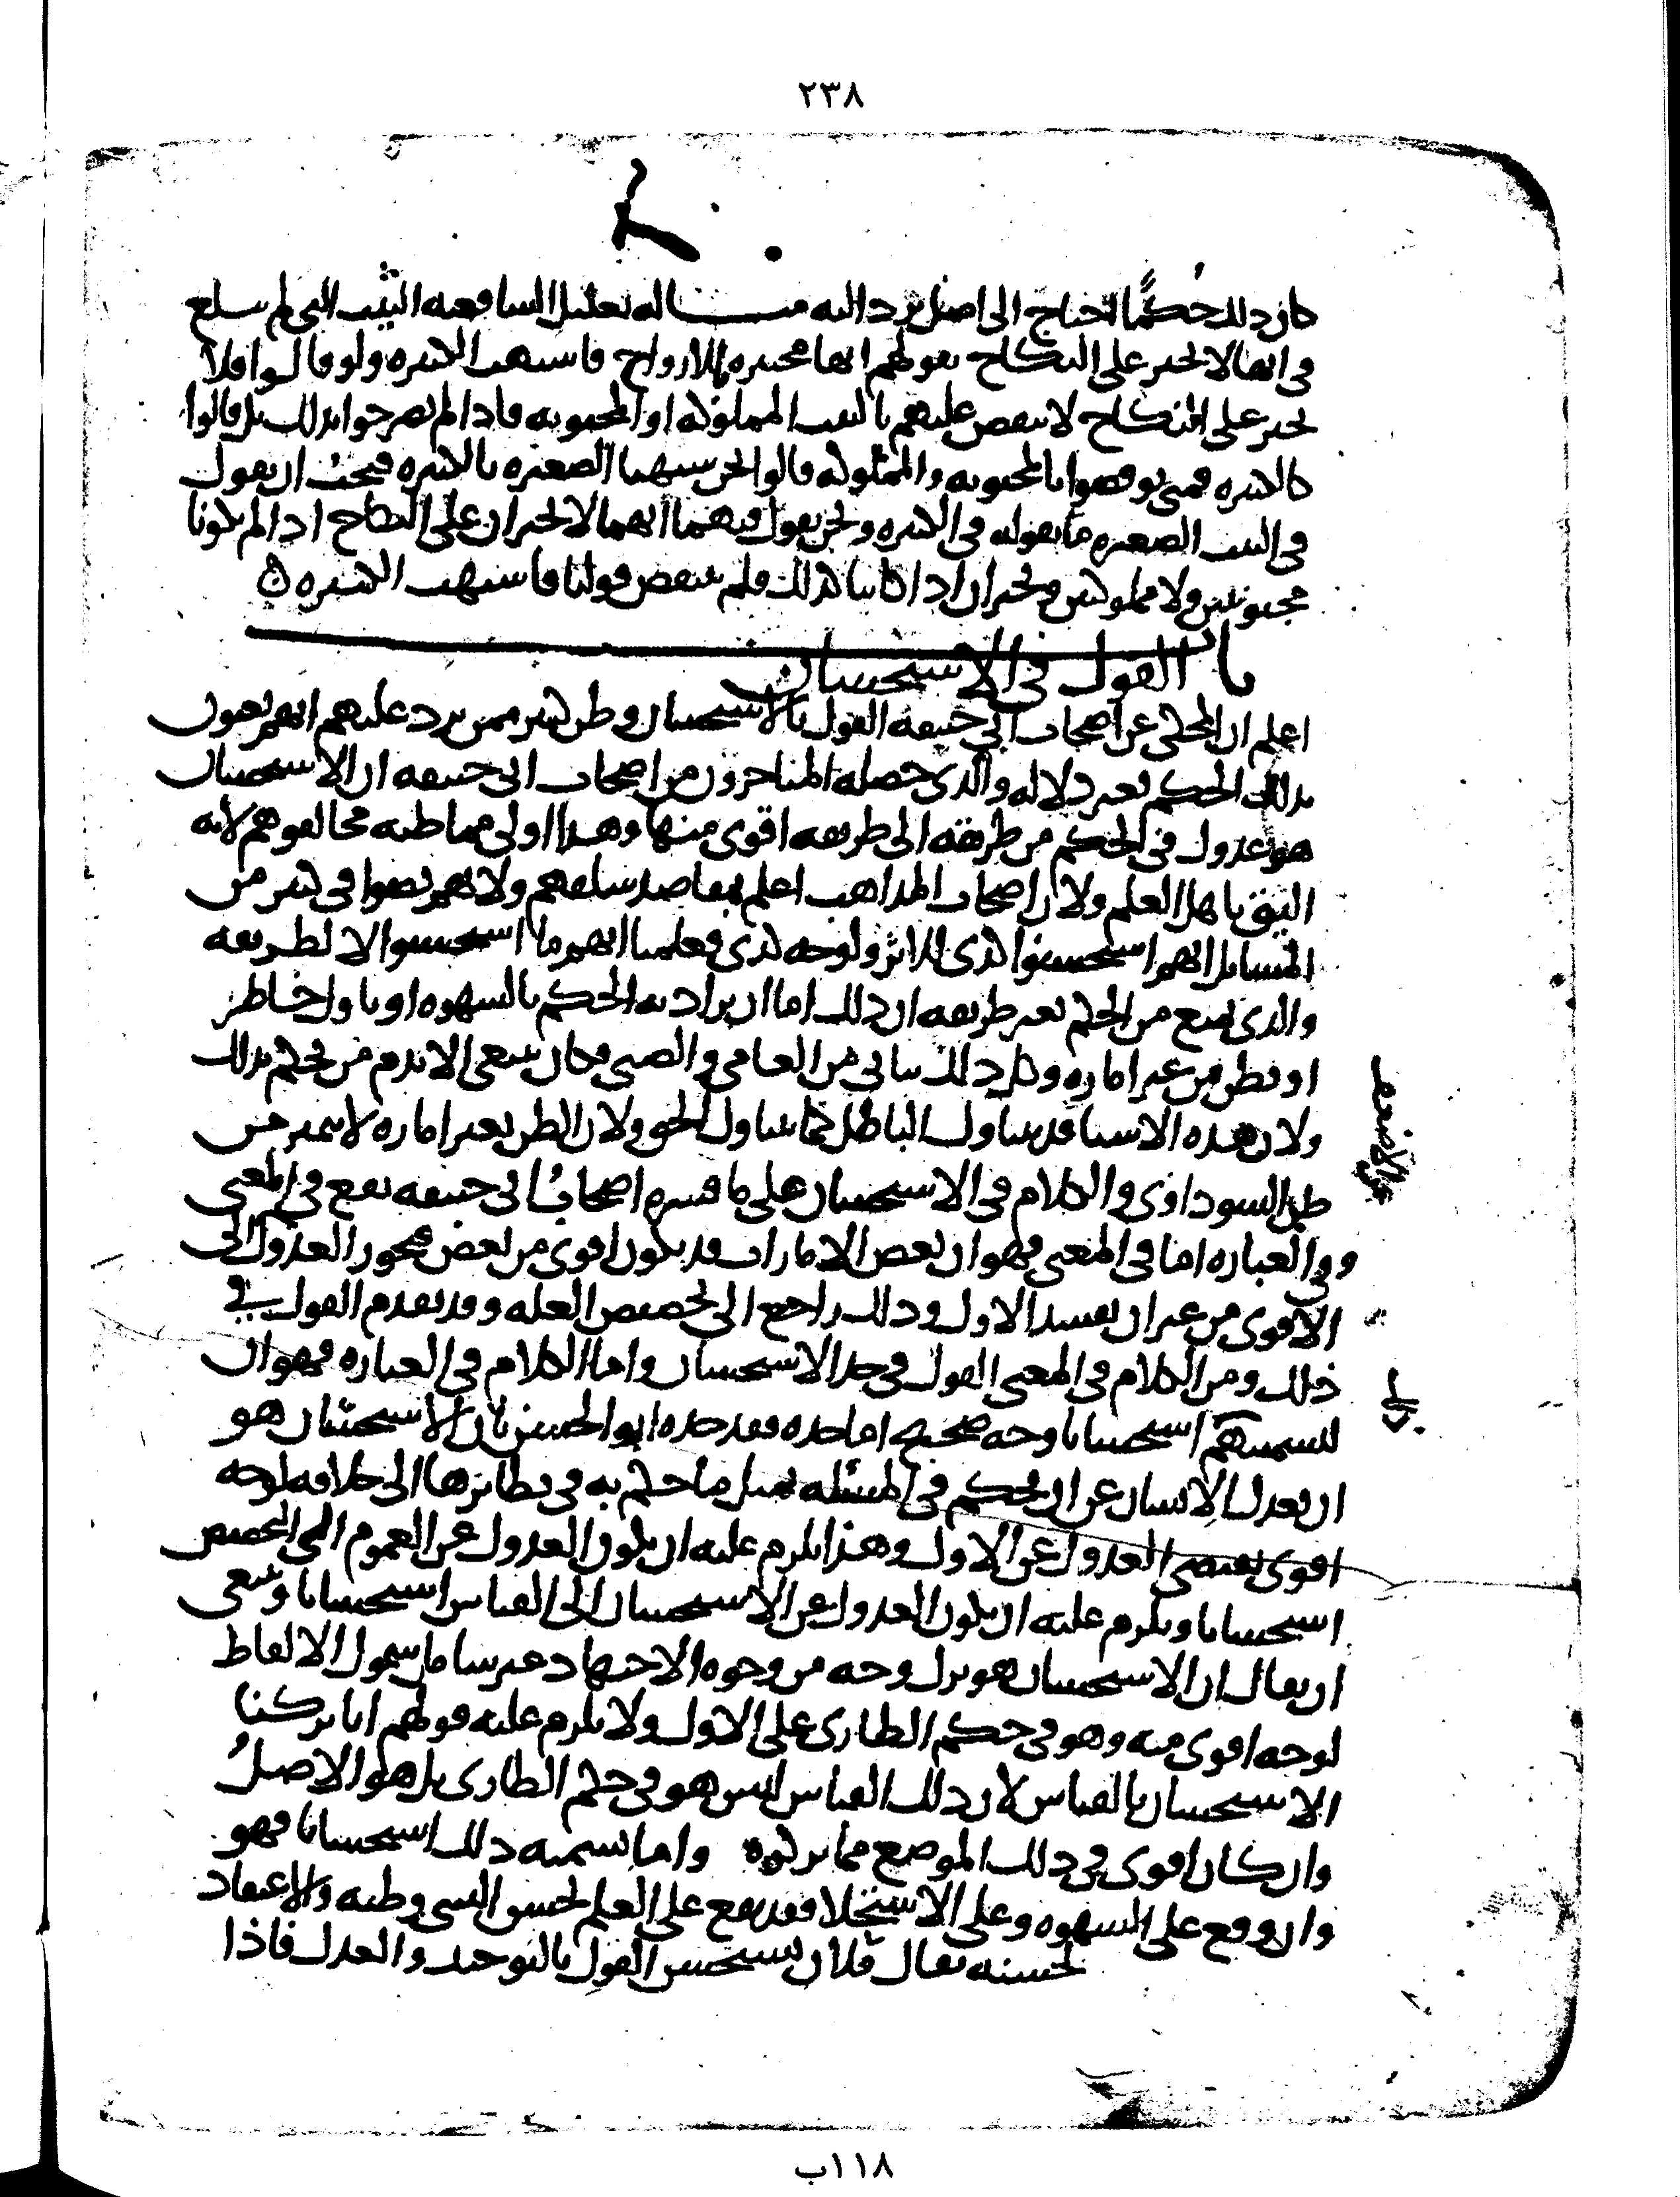 ٢٣٨
كان ذلك حكمًا احتاج الى اصل يرد اليه مثاله تعليل الشافعيه الثيب التي لم تبلغ
في انها لا تجبر على النكاح بقولهم انها مخبره بالازواج فاشبهت الكبيره ولو قالوا فلا
تجبر على النكاح لانتقض عليهم بالثيب المملوكه او المجنونه فاذا لم يصرحوا بذلك بل قالوا
كالكبيره فمتى نوقضوا بالمجنونه والمملوكه قالوا نحن شبهنا الصغيره بالكبيره فيجب ان نقول
في الثيب الصغيره ما نقوله في الكبيره ونحن نقول فيهما انهما لا تجبران على النكاح اذا لم تكونا
مجنونتين ولا مملوكتين وتجبران اذا كانتا كذلك فلم ينتقض قولنا فاشبهت الكبيره
باب القول في الاستحسان
اعلم ان المحكي عن اصحاب ابي حنيفه القول بالاستحسان وظن كثير ممن رد عليهم انهم يعنون
بذلك الحكم بغير دلاله والذي حصله المتاخرون من اصحاب ابي حنيفه ان الاستحسان
هو عدول في الحكم من طريقه الى طريقه اقوى منها وهذا اولى مما ظنه مخالفوهم لانه
اليق باهل العلم ولان اصحاب المذاهب اعلم بمقاصد سلفهم ولانهم نصوا في كثير من
المسايل انهم استحسنوا كذى للاثر ولوجه كذى فعلمنا انهم ما استحسنوا الا لطريقه
والذي يمنع من الحكم بغير طريقه ان ذلك اما ان يراد به الحكم بالشهوه او باول خاطر
او بظن من غير اماره وكل ذلك يتاتى من العامي والصبي فكان ينبغي الا يذم من يحكم بذلك
ولان هذه الاشيا قد يتناول الباطل كما يتناول الحق ولان الظن بغير اماره لا يتميز من
ظن السوداوى والكلام في الاستحسان على ما فسره اصحاب ابي حنيفه يقع في المعنى
وفي العباره اما في المعنى فهو ان بعض الامارات قد يكون اقوى من بعض فيجوز العدول الى
الاقوى من غير ان يفسد الاول وذلك راجع الى تخصيص العله وقد تقدم القول في
ذلك ومن الكلام في المعنى القول في حد الاستحسان واما الكلام في العباره فهو ان
لتسميتهم استحسانا وجه صحيح اما حده فقد حده ابو الحسن بان الاستحسان هو
ان يعدل الانسان عن ان يحكم في المسئله بمثل ما حكم به في نظائرها الى خلافه لوجه
اقوى يقتضي العدول عن الاول وهذا يلزم عليه ان يكون العدول عن العموم الى التخصيص
استحسانا ويلزم عليه ان يكون العدول عن الاستحسان الى القياس استحسانا وينبغي
ان يقال ان الاستحسان هو ترك وجه من وجوه الاجتهاد غير شامل شمول الالفاظ
لوجه اقوى منه وهو في حكم الطارى على الاول ولا يلزم عليه قولهم انا تركنا
الاستحسان بالقياس لان ذلك القياس ليس هو في حكم الطارى بل هو الاصل
وان كان اقوى في ذلك الموضع مما تركوه واما تسميه ذلك استحسانا فهو
وان وقع على الشهوه وعلى الاستحلا فقد يقع على العلم بحسن الشي وظنه والاعتقاد
لحسنه يقال فلان يستحسن القول بالتوحيد والعدل فاذا
١١٨ب